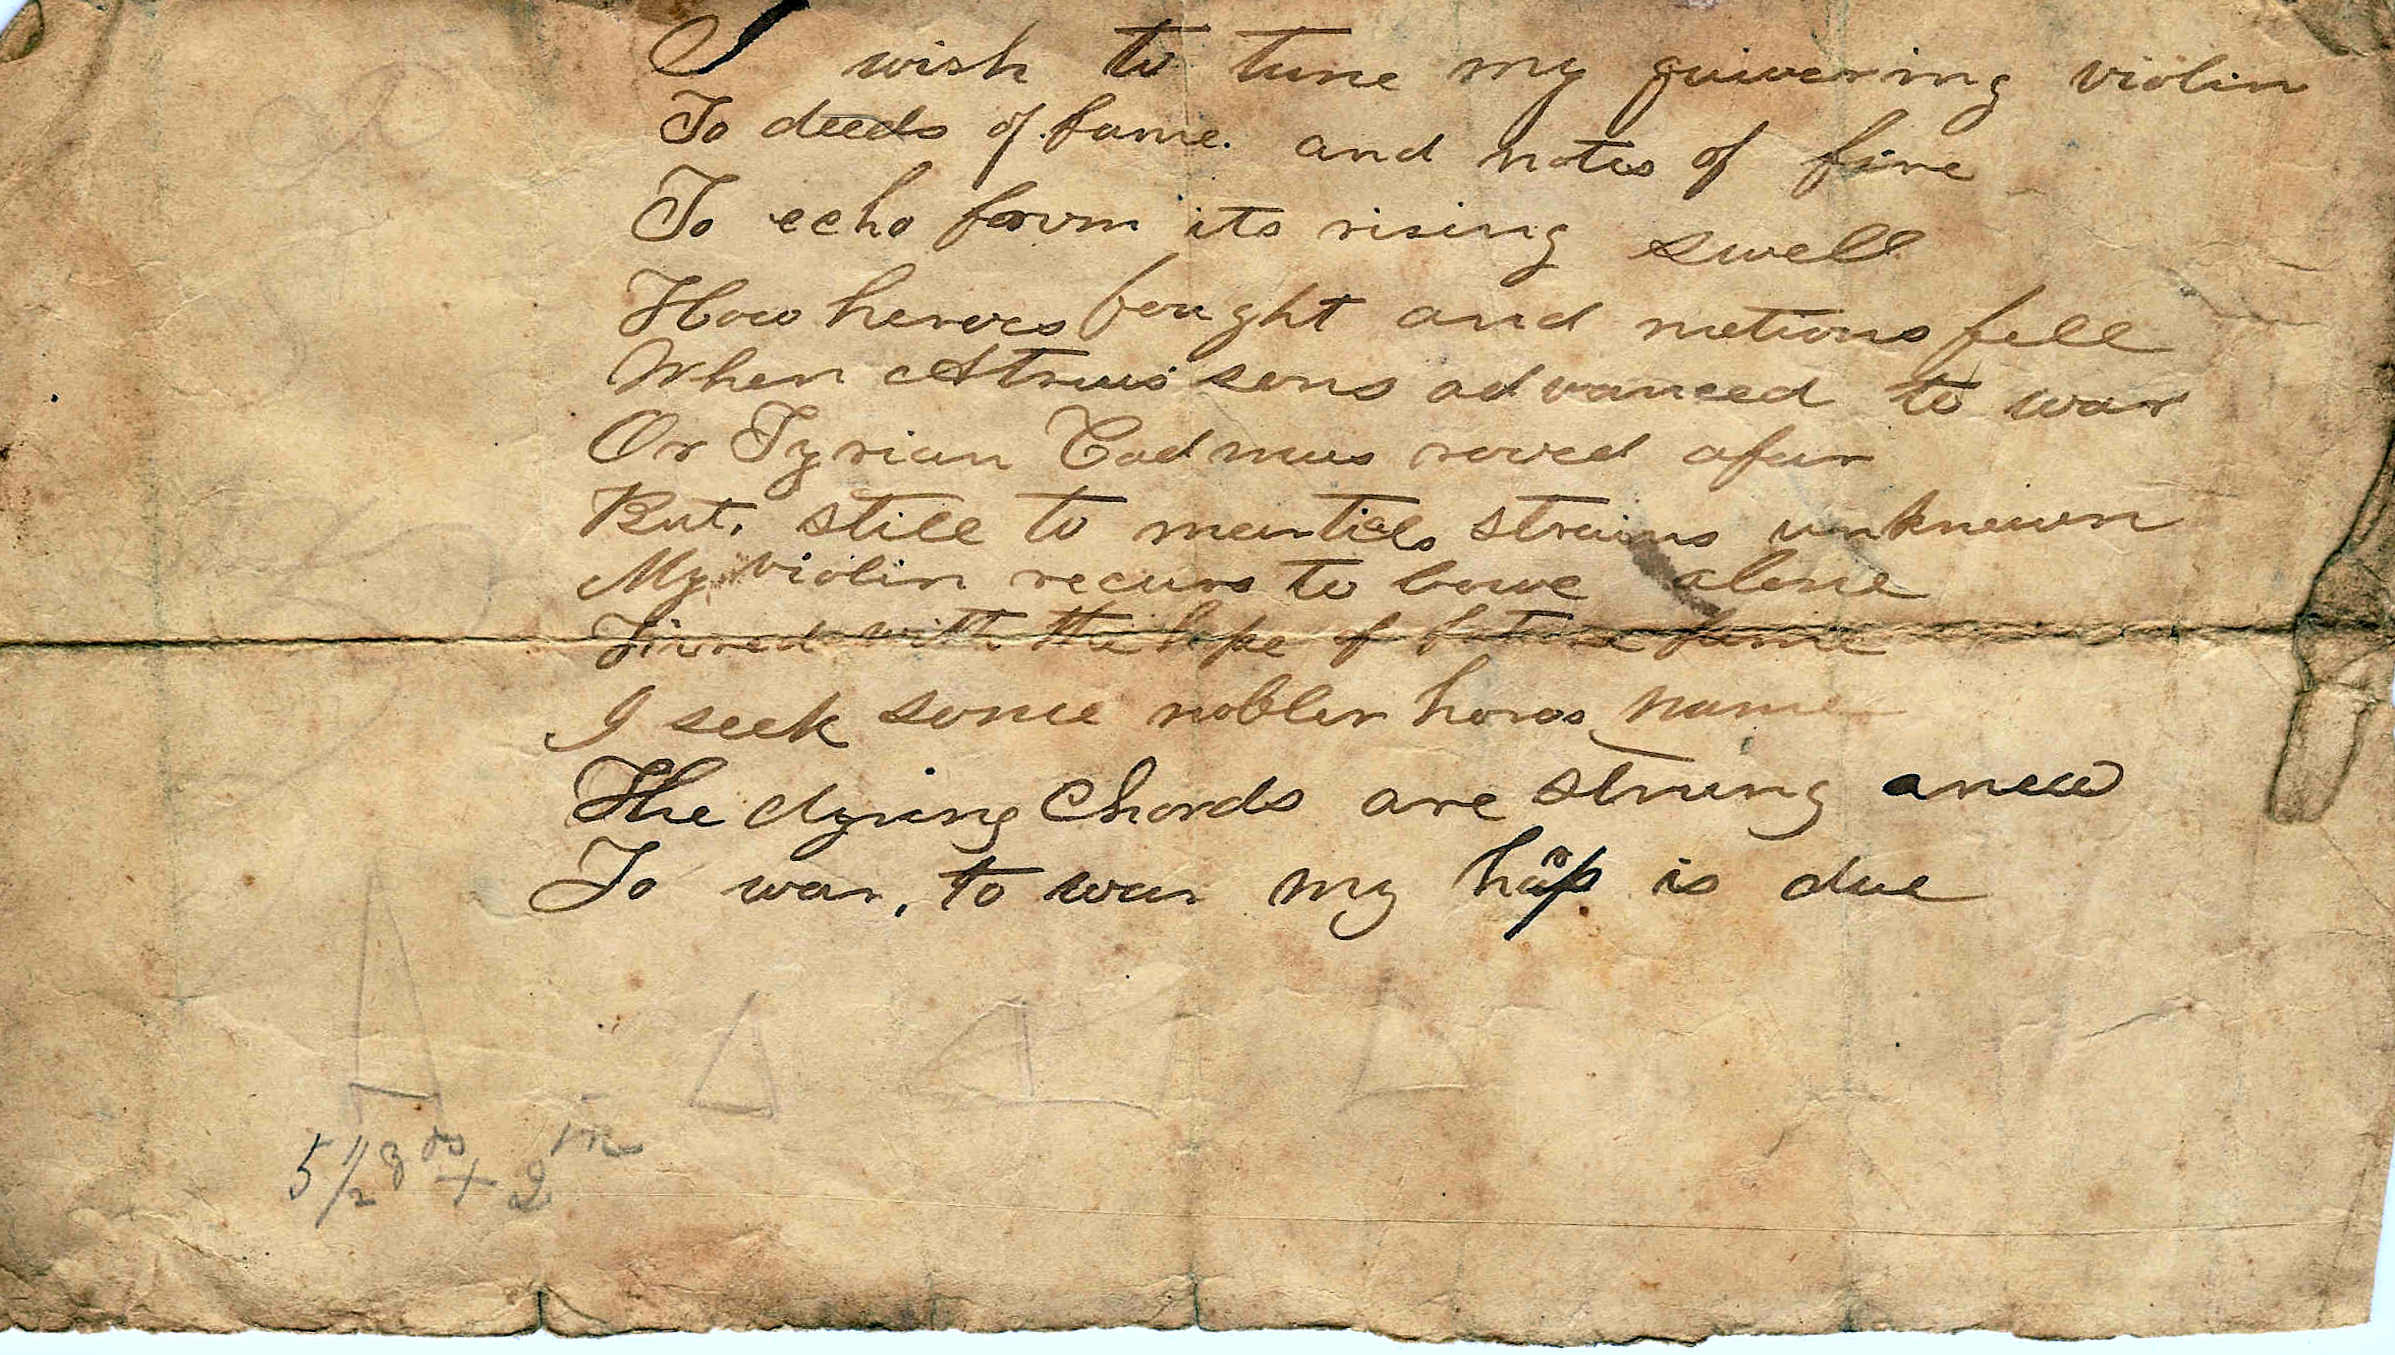 I wish to tune my quivering violin
To deeds of fame. and notes of fire
To echo form its rising swell
How heroes fought and nations fell
When Atreus' sons advanced to war
Or Tyrian Cadmus roved afar
But, still to martial strains unknown
My violin recurs to love alone
Fired with the hope of future fame
I seek some nobler heros name
The dying Chords are strung anew
To war, to war my harp is due
5 1/2 + 2 in